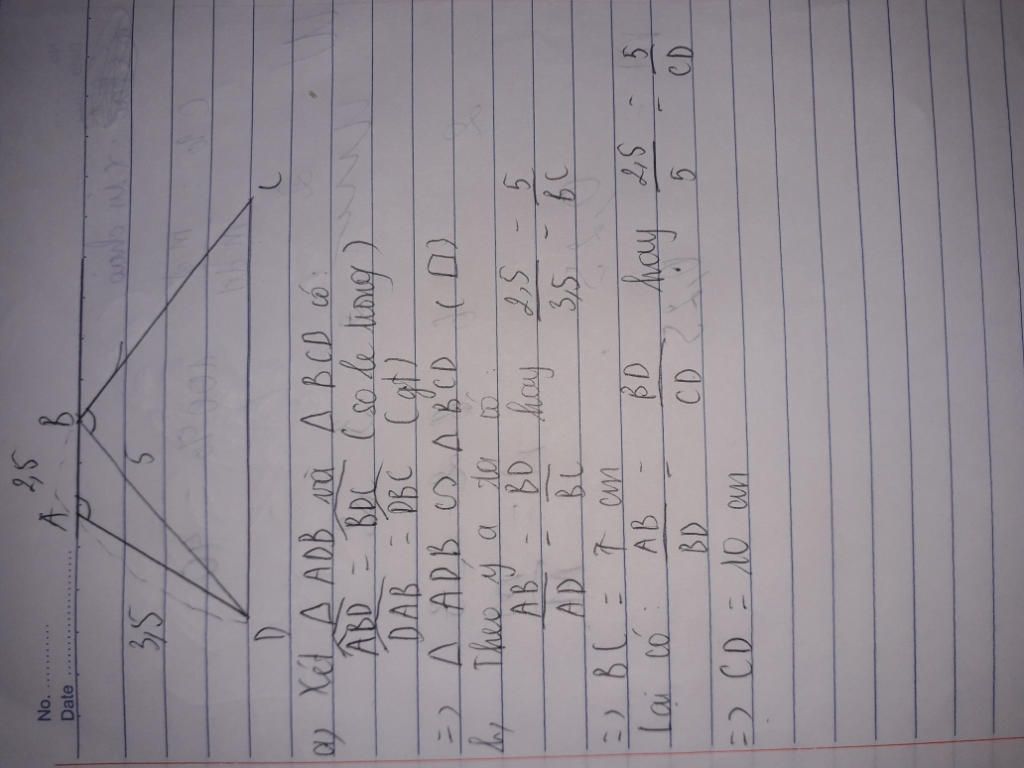 No. ..............
Date ......................
A 2,5 B
3,5 5
D C
a) Xét Δ ADB và Δ BCD có:
ABD = BDC (so le trong)
DAB = DBC (gt)
=> Δ ADB ∽ Δ BCD
b, Theo ý a ta có:
AB/AD = BD/BC hay 2,5/3,5 = 5/BC
=> BC = 7 cm
Lại có: AB/BD = BD/CD hay 2,5/5 = 5/CD
=> CD = 10 cm